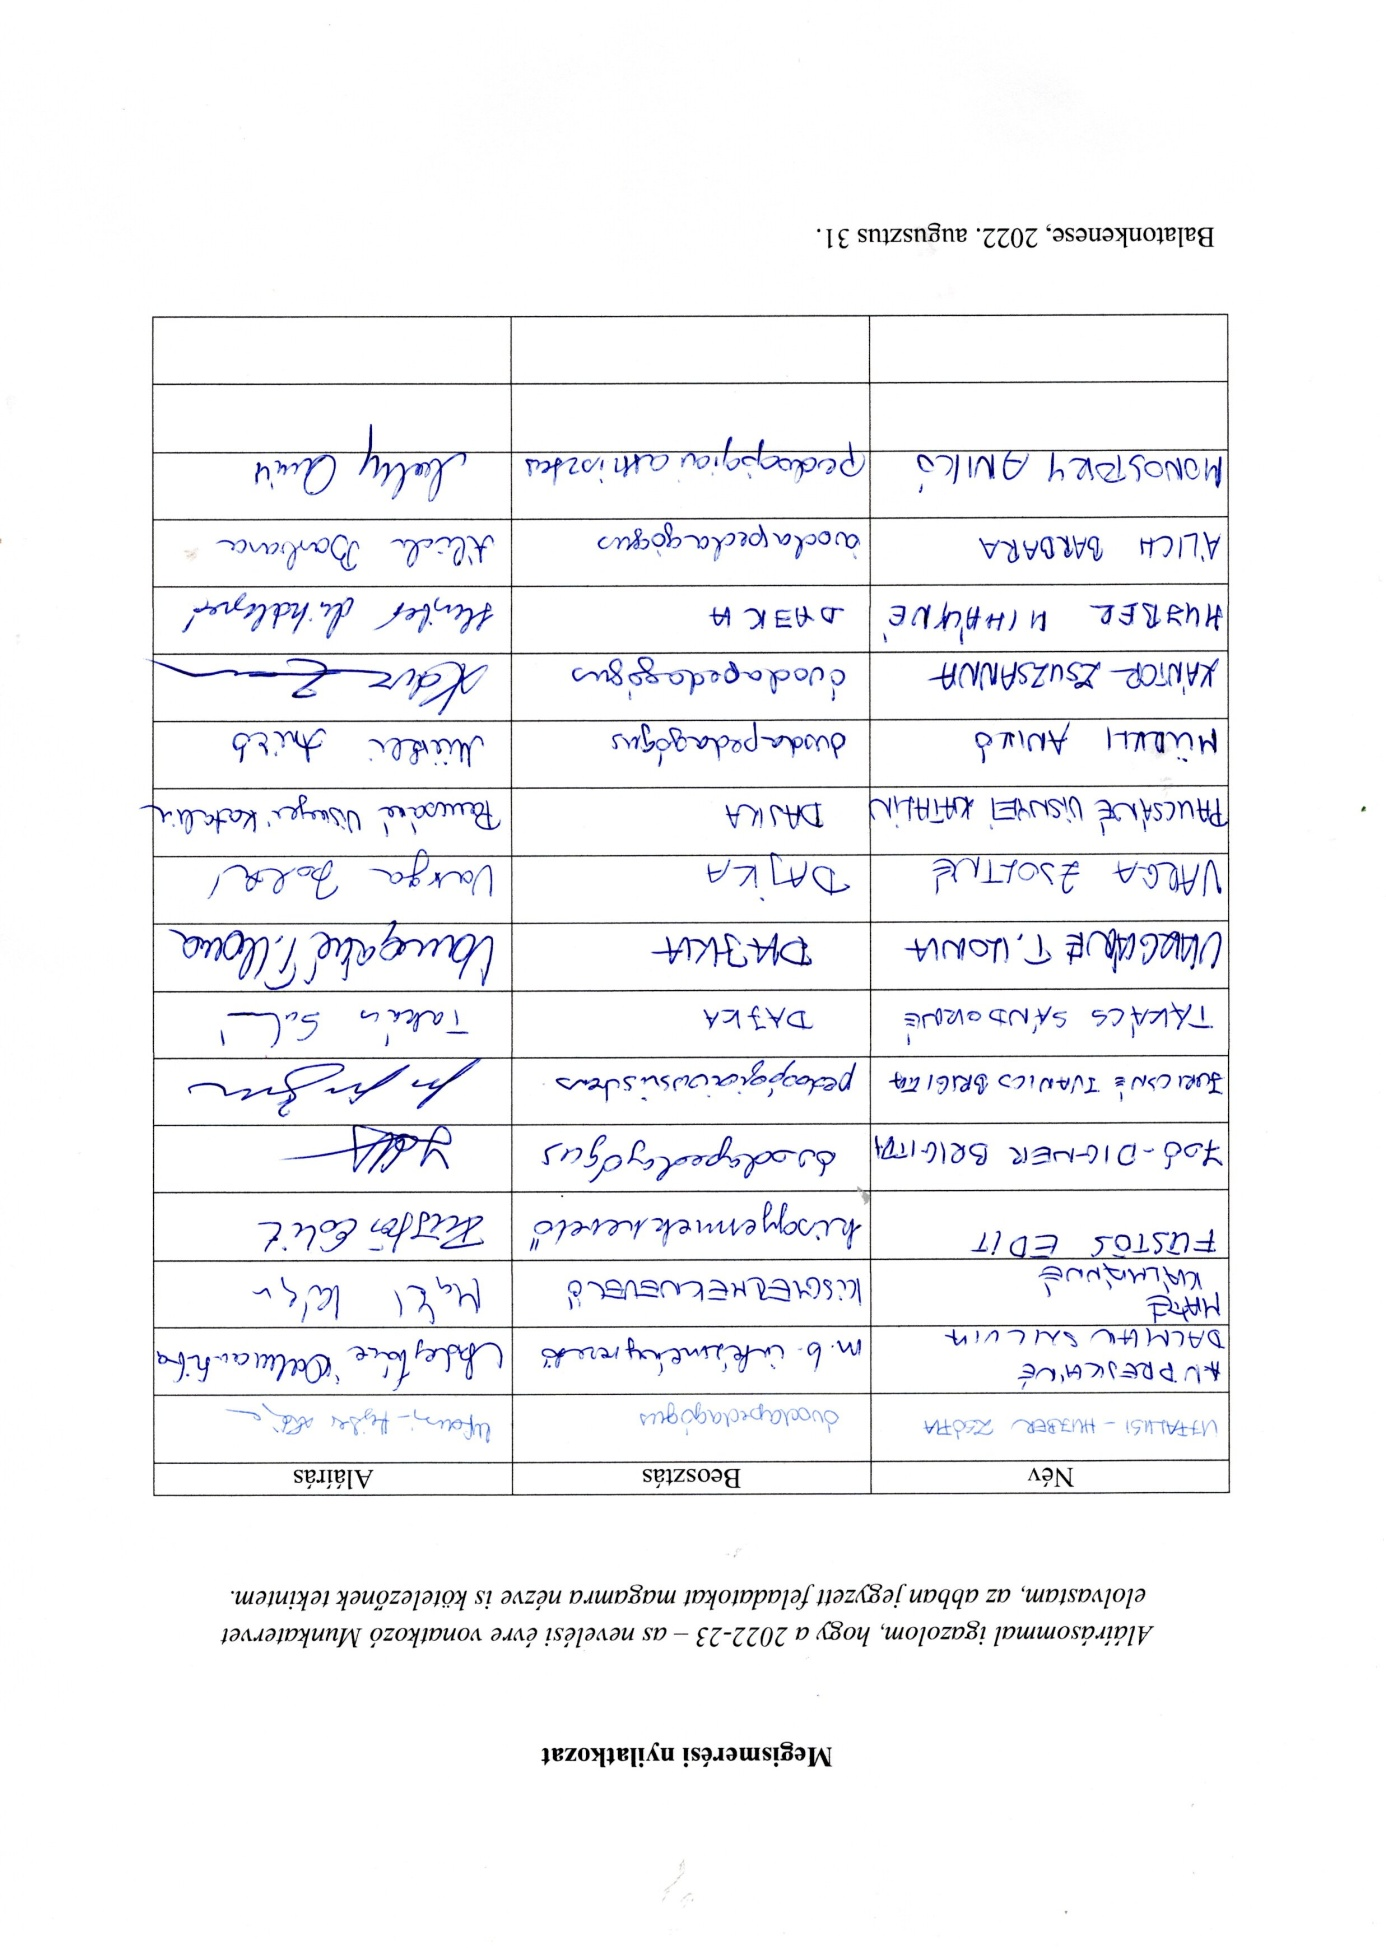 Megismerési nyilatkozat
Aláírásommal igazolom, hogy a 2022-23 – as nevelési évre vonatkozó Munkatervet
elolvastam, az abban jegyzett feladatokat magamra nézve is kötelezőnek tekintem.
Név Beosztás Aláírás
UJFALUSI - HUJBER ZSÓFIA óvodapedagógus
ANDREJKÁNÉ
DALMIAN SZILVIA m.b. intézményvezető
MÁTÉ
KÁLMÁNNÉ KISGYERMEKNEVELŐ
FÜSTÖS EDIT kisgyermeknevelő Füstös Edit
JOÓ-DIGNER BRIGITTA óvodapedagógus
JURICSNÉ IVANICS BRIGITTA pedagógiai asszisztens
TAKÁCS SÁNDORNÉ DAJKA Takács
VARGÁNÉ T. ILONA DAJKA Vargáné T. Ilona
VARGA ZSOLTNÉ DAJKA Varga
PAUCSÁNÉ VISNYEI KATALIN DAJKA Paucsáné Visnyei Katalin
MÜKKLI ANIKÓ óvodapedagógus Anikó
KÁNTOR ZSUZSANNA óvodapedagógus
HUJBER MIHÁLYNÉ DAJKA Hujber Mihályné
ÁLICH BARBARA óvodapedagógus Álich Barbara
MONOSTORY ANIKÓ pedagógiai asszisztens Anikó
Balatonkenese, 2022. augusztus 31.